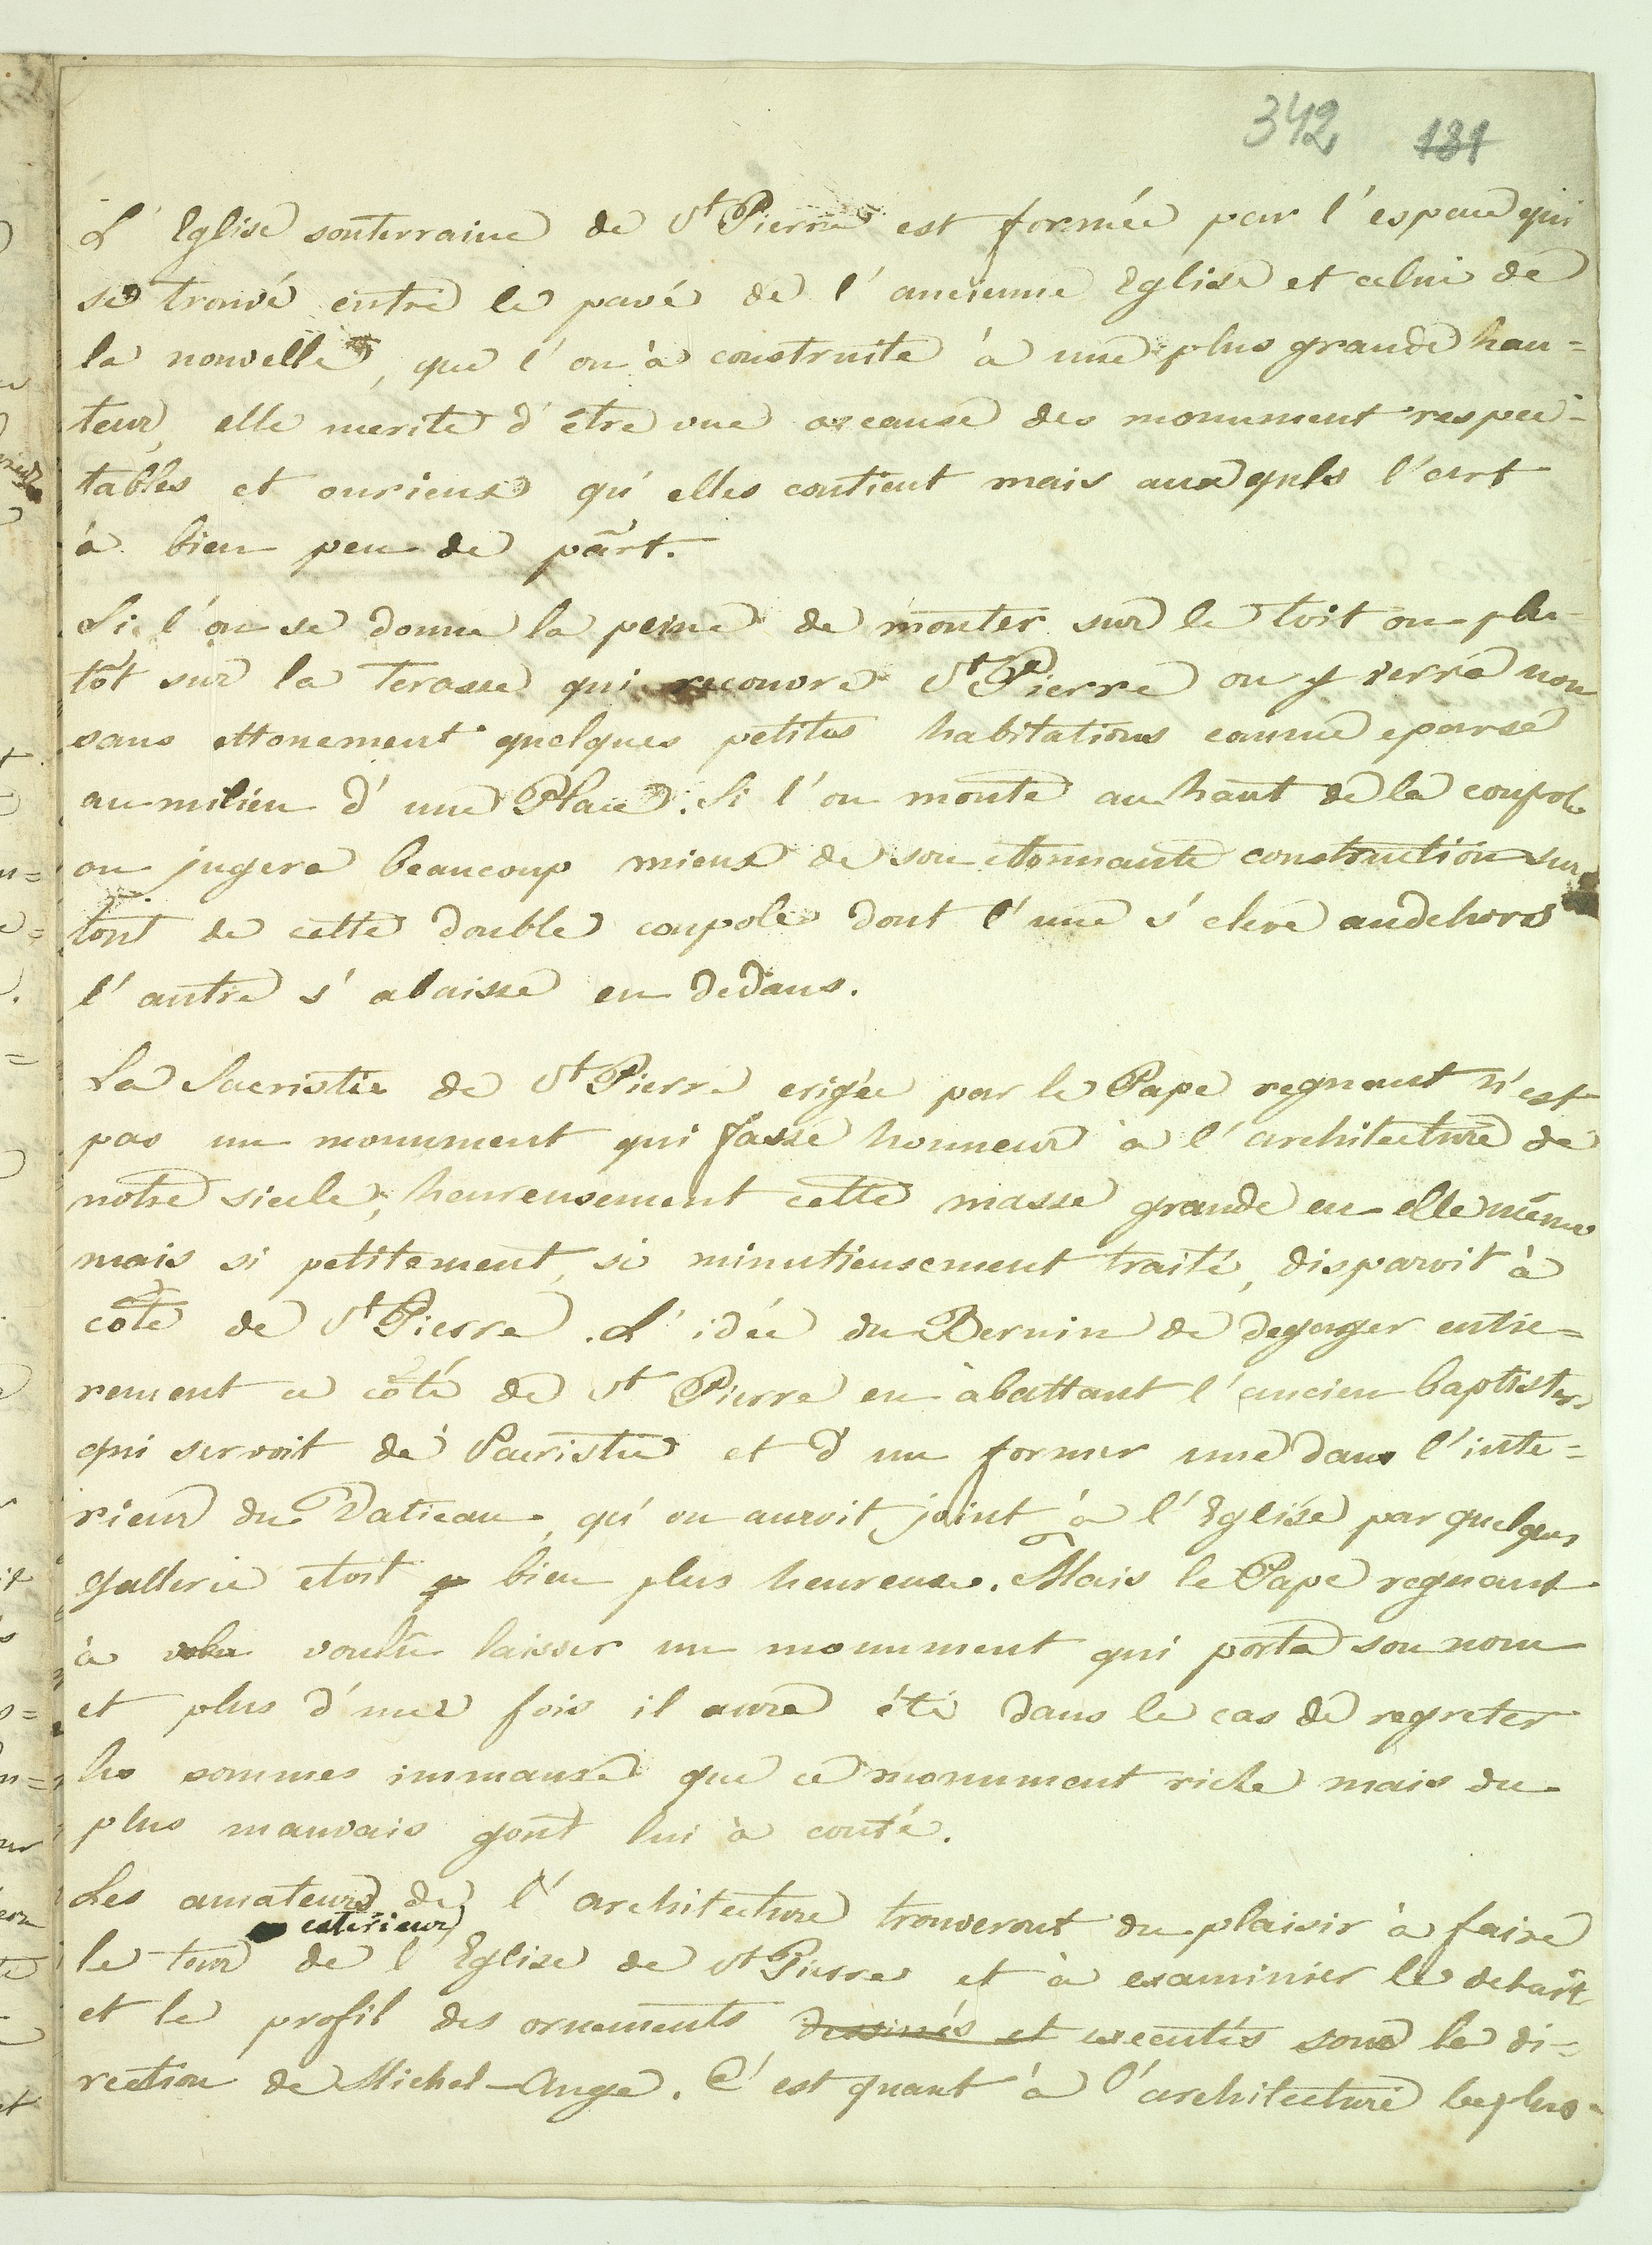 342 131
L'Eglise souterraine de St Pierre est formée par l'espace qui
se trouve entre le pavé de l'ancienne Eglise et celui de
la nouvelle, que l'on à construite à une plus grande hau=
teur, elle merite d'être vue a cause des monument respec-
tables et curieux qu'elles contient mais auxquls l'art
à bien peu de part.
Si l'on se donne la peine de monter sur le toit ou plu-
tôt sur la Terasse qui recouvre St Pierre on y verra non
sans ettonement quelques petites habitations comme eparse
au milieu d'une Place. Si l'on monte au haut de la coupole
on jugera beaucoup mieux de son etonnante construction sur
tout de cette double coupole dont l'une s'eleve audehors
l'autre s'abaisse en dedans.
La Sacristie de St Pierre erigée par le Pape regnant n'est
pas un monument qui fasse honneur à l'architecture de
notre siecle; heureusement cette masse grande en elle même
mais si petitement, si minutieusement traité, disparoit à
côté de St Pierre. L'idée du Bernin de degager entie=
rement ce côté de St Pierre en àbattant l'ancien baptister
qui servoit de Sacristie et d'un former une dans l'inte=
rieur du Vatican, qu'on auroit joint à l'Eglise par quelques
gallerie etoit bien plus heureuse. Mais le Pape regnant
à voulu laisser un monument qui porta son nom
et plus d'une fois il aura été dans le cas de regreter
les sommes immense que ce monument riche mais du
plus mauvais gout lui à couté.
Les amateurs de l'architecture trouveront du plaisir à faire
exterieur
le tour de l'Eglise de St Pierre et à examinier le detail
et le profil des ornements dessinés et executés sous la di=
rection de Michel-Ange. C'est quant à l'architecture le plus